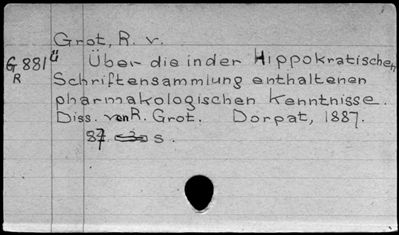 Grot, R. v.
G881ü Über die in der Hippokratischen
R Schriftensammlung enthaltenen
pharmakologischen Kenntnisse.
Diss. von R. Grot. Dorpat, 1887.
87 s.